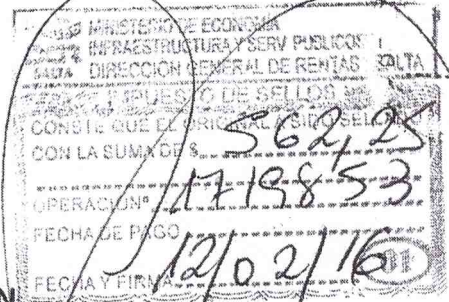 MINISTERIO DE ECONOMIA
INFRAESTRUCTURA Y SERV PUBLICOS
SALTA DIRECCION GENERAL DE RENTAS SALTA
IMPUESTO DE SELLOS
CONSTE QUE EL ORIGINAL SIDO SELL
CON LA SUMA DE $ 562,25
OPERACION Nº 1719853
FECHA DE PAGO
FECHA Y FIRMA 12/02/16 01
N